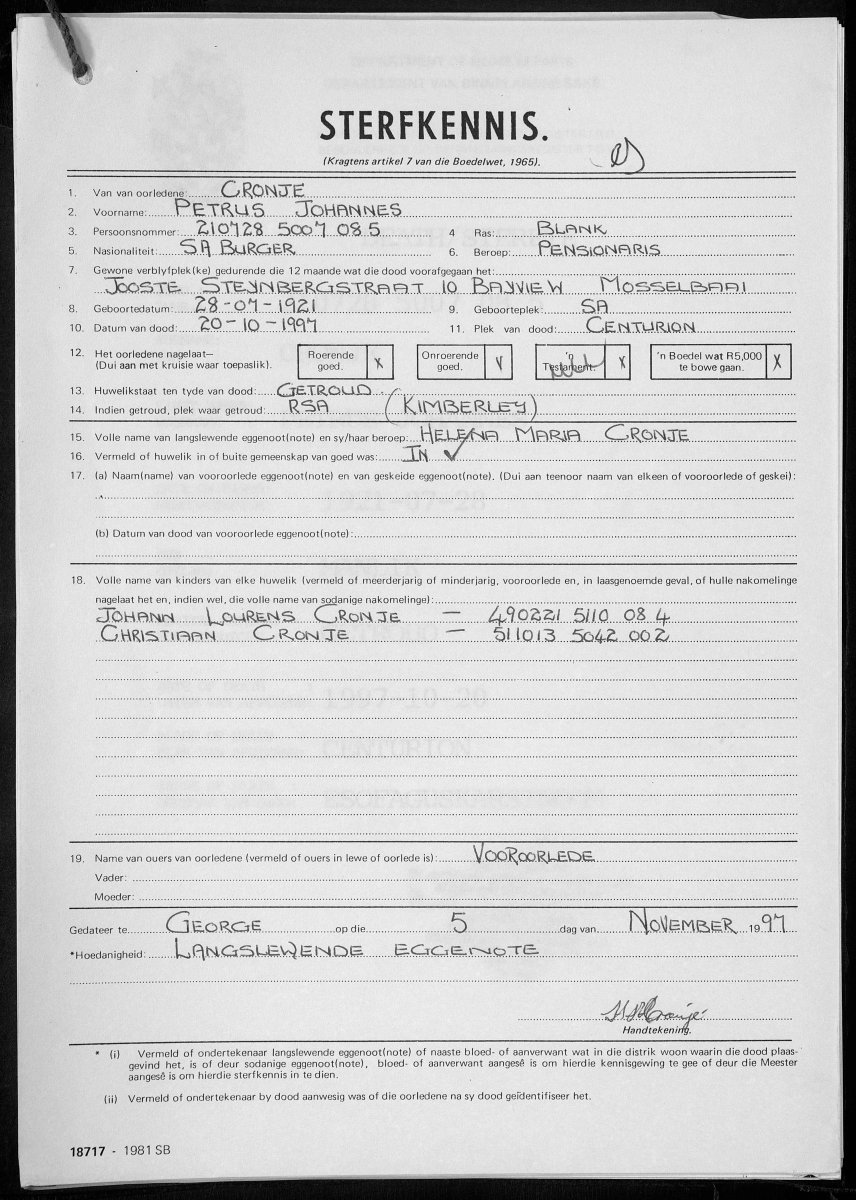 STERFKENNIS.
(Kragtens artikel 7 van die Boedelwet, 1965).
1. Van van oorledene: CRONJE
2. Voorname: PETRUS JOHANNES
3. Persoonsnommer: 210728 5007 08 5 4 Ras: BLANK
5. Nasionaliteit: SA BURGER 6. Beroep: PENSIONARIS
7. Gewone verblyfplek(ke) gedurende die 12 maande wat die dood voorafgegaan het:
JOOSTE STEYNBERGSTRAAT 10 BAYVIEW MOSSELBAAI
8. Geboortedatum: 28-07-1921 9. Geboorteplek: SA
10. Datum van dood: 20-10-1997 11. Plek van dood: CENTURION
12. Het oorledene nagelaat—
(Dui aan met kruisie waar toepaslik).
Roerende goed. X
Onroerende goed. V
'n Testament. X
'n Boedel wat R5,000 te bowe gaan. X
13. Huwelikstaat ten tyde van dood: GETROUD
14. Indien getroud, plek waar getroud: RSA (KIMBERLEY)
15. Volle name van langslewende eggenoot(note) en sy/haar beroep: HELENA MARIA CRONJE
16. Vermeld of huwelik in of buite gemeenskap van goed was: IN ✓
17. (a) Naam(name) van vooroorlede eggenoot(note) en van geskeide eggenoot(note). (Dui aan teenoor naam van elkeen of vooroorlede of geskei):
(b) Datum van dood van vooroorlede eggenoot(note):
18. Volle name van kinders van elke huwelik (vermeld of meerderjarig of minderjarig, vooroorlede en, in laasgenoemde geval, of hulle nakomelinge
nagelaat het en, indien wel, die volle name van sodanige nakomelinge):
JOHANN LOURENS CRONJE — 490221 5110 08 4
CHRISTIAAN CRONJE — 511013 5042 002
19. Name van ouers van oorledene (vermeld of ouers in lewe of oorlede is): VOOROORLEDE
Vader:
Moeder:
Gedateer te GEORGE op die 5 dag van NOVEMBER 1997
*Hoedanigheid: LANGSLEWENDE EGGENOTE
Handtekening.
* (i) Vermeld of ondertekenaar langslewende eggenoot(note) of naaste bloed- of aanverwant wat in die distrik woon waarin die dood plaas-
gevind het, is of deur sodanige eggenoot(note), bloed- of aanverwant aangesê is om hierdie kennisgewing te gee of deur die Meester
aangesê is om hierdie sterfkennis in te dien.
(ii) Vermeld of ondertekenaar by dood aanwesig was of die oorledene na sy dood geïdentifiseer het.
18717 - 1981 SB